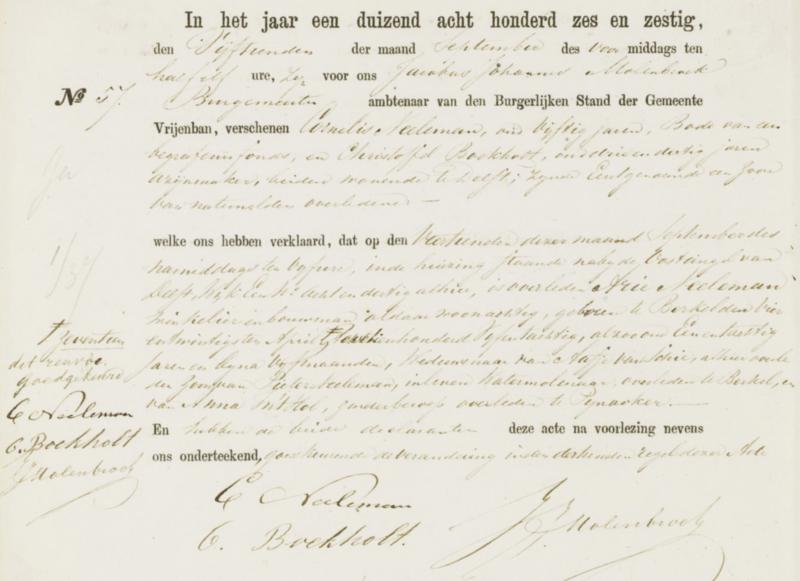 In het jaar een duizend acht honderd zes en zestig,
den Vijftienden der maand September des voor middags ten
half elf ure, zijn voor ons Jacobus Johannes Molenbroek
No 57 Burgemeester ambtenaar van den Burgerlijken Stand der Gemeente
Vrijenban, verschenen Cornelis Neeleman, oud vijftig jaren, Bode van een
begrafenisfonds, en Christoffel Boekholt, oud drie en dertig jaren
, beiden wonende te Delft, zijnde eerstgenoemde een zoon
van natemelden overledene —
welke ons hebben verklaard, dat op den Veertienden dezer maand September des
namiddags ten vijf ure, in de huizing staande nabij de Oosteinde van
Delft, Wijk Een No. acht en dertig alhier, is overleden Arie Neeleman
winkelier en bouwman, aldaar woonachtig, geboren te Berkel den vier
en twintigsten April honderd vijf en tachtig, alzoo oud Een en tachtig
jaren en bijna vijf maanden, Weduwnaar van Aafje van , alhier overle
den, zoon van Pieter Neeleman, in leven Watermolenaar, overleden te Berkel, en
van Anna 't Hol, zonder beroep overleden te Pijnacker. —
En hebben de beide declaranten deze acte na voorlezing nevens
ons onderteekend, goedkeurende de verandering in den dertienden regel dezer Acte
zeventien
dit renvooi
goedgekeurd
C Neeleman
C. Boekholt
JJMolenbroek
C Neeleman
C. Boekholt.
JJMolenbroek